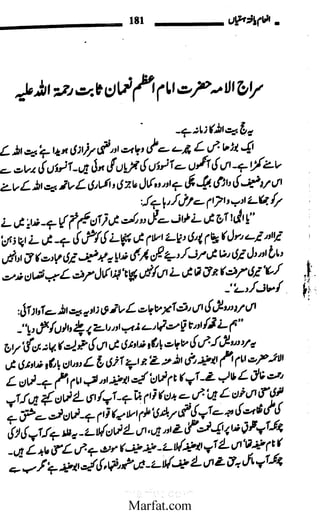 انعام یافتہ ہستیاں
181
سراج الامہ حضرت امام اعظم نعمان ثابت رحمۃ اللہ علیہ
یہ حج بیت اللہ کا زمانہ ہے۔
ایک بوڑھا جس کے چہرے سے علمی وجاہت اور فقہی سرفرازی ہویدا ہے بیت اللہ کے
سامنے کھڑا ہے۔ اس کی آنکھوں سے آنسوؤں کی جھڑیاں لگی ہوئی ہیں۔ آنسوؤں کی برسات سے
اس مرد ضعیف کی داڑھی بھیگ چکی ہے اور وہ کمال عاجزی و انکساری کے ساتھ بیت اللہ کے سامنے
سر جھکائے ادب و احترام سے عرض کر رہا ہے کہ:
"یا الٰہی! آج میں نے طواف سے قبل دو رکعت میں قرآن حکیم ختم کیا ہے۔ خدایا میں نے
تیرا اور تیرے رسول کا پیغام پوری دنیائے اسلام میں پہنچانے کی کوشش کی ہے۔ میں نے اپنا ذہن
دماغ اور دل تیری رضا میں صرف کر دیئے لیکن پھر بھی خدایا یہ عبد ضعیف تیری عبادت کا حق ادا نہیں
کر سکا" تیری معرفت کا جو حق تھا میں نے اس کو نہیں پہچانا" لہٰذا کمال معرفت کے سبب نقصان خدمت
کو معاف کر دے"۔
اس مرد درویش کی اس رقت آمیز مناجات کے ساتھ ہی زاویہ بیت اللہ سے آواز آئی:
"ہم نے تجھ کو اور تا قیامت تمہارے مذہب اور راستے پر چلنے والوں کو بخش دیا"۔
یہ مرد درویش کہ جس کی مناجات بارگاہ خداوندی میں اس کی مقبولیت کا بہانہ بن گئی' سراج
الائمہ حضرت امام اعظم ابوحنیفہ رضی اللہ عنہ تھے جو اپنے آخری حج کے دوران بارگاہ خداوندی میں
رحمت خالق کے طالب تھے۔ آپ کا نام نعمان' کنیت ابوحنیفہ اور لقب امام اعظم ہے۔ نعمان کے
لغوی معنی اس خون کے ہیں' جس سے بدن کا قوام بنتا ہے۔ آپ کو اس لئے نعمان کہتے ہیں کہ آپ
کی علمی ثقاہت کی وجہ سے آپ کی فقہی سربلندی' علوم اسلامیہ کا قوام ہے۔ نعمان نعمت سے مشتق ہے
چونکہ آپ مخلوق خدا پر ایک نعمت عظمیٰ تھے اور ہیں، اس لئے نعمان کہلائے۔ یہ غلط ہے کہ آپ کی لڑکی
کا نام حنیفہ تھا' اس لئے آپ ابوحنیفہ کہلائے۔ حنیفہ حنیف کا مونث ہے جس کے معنی عابد کے ہیں۔
چونکہ آپ مائل بہ حق تھے اس لئے حنیف کہلائے۔ بیں مشہور فقہاء کی کنیت ابوحنیفہ ہے' مگر سب سے
Marfat.com